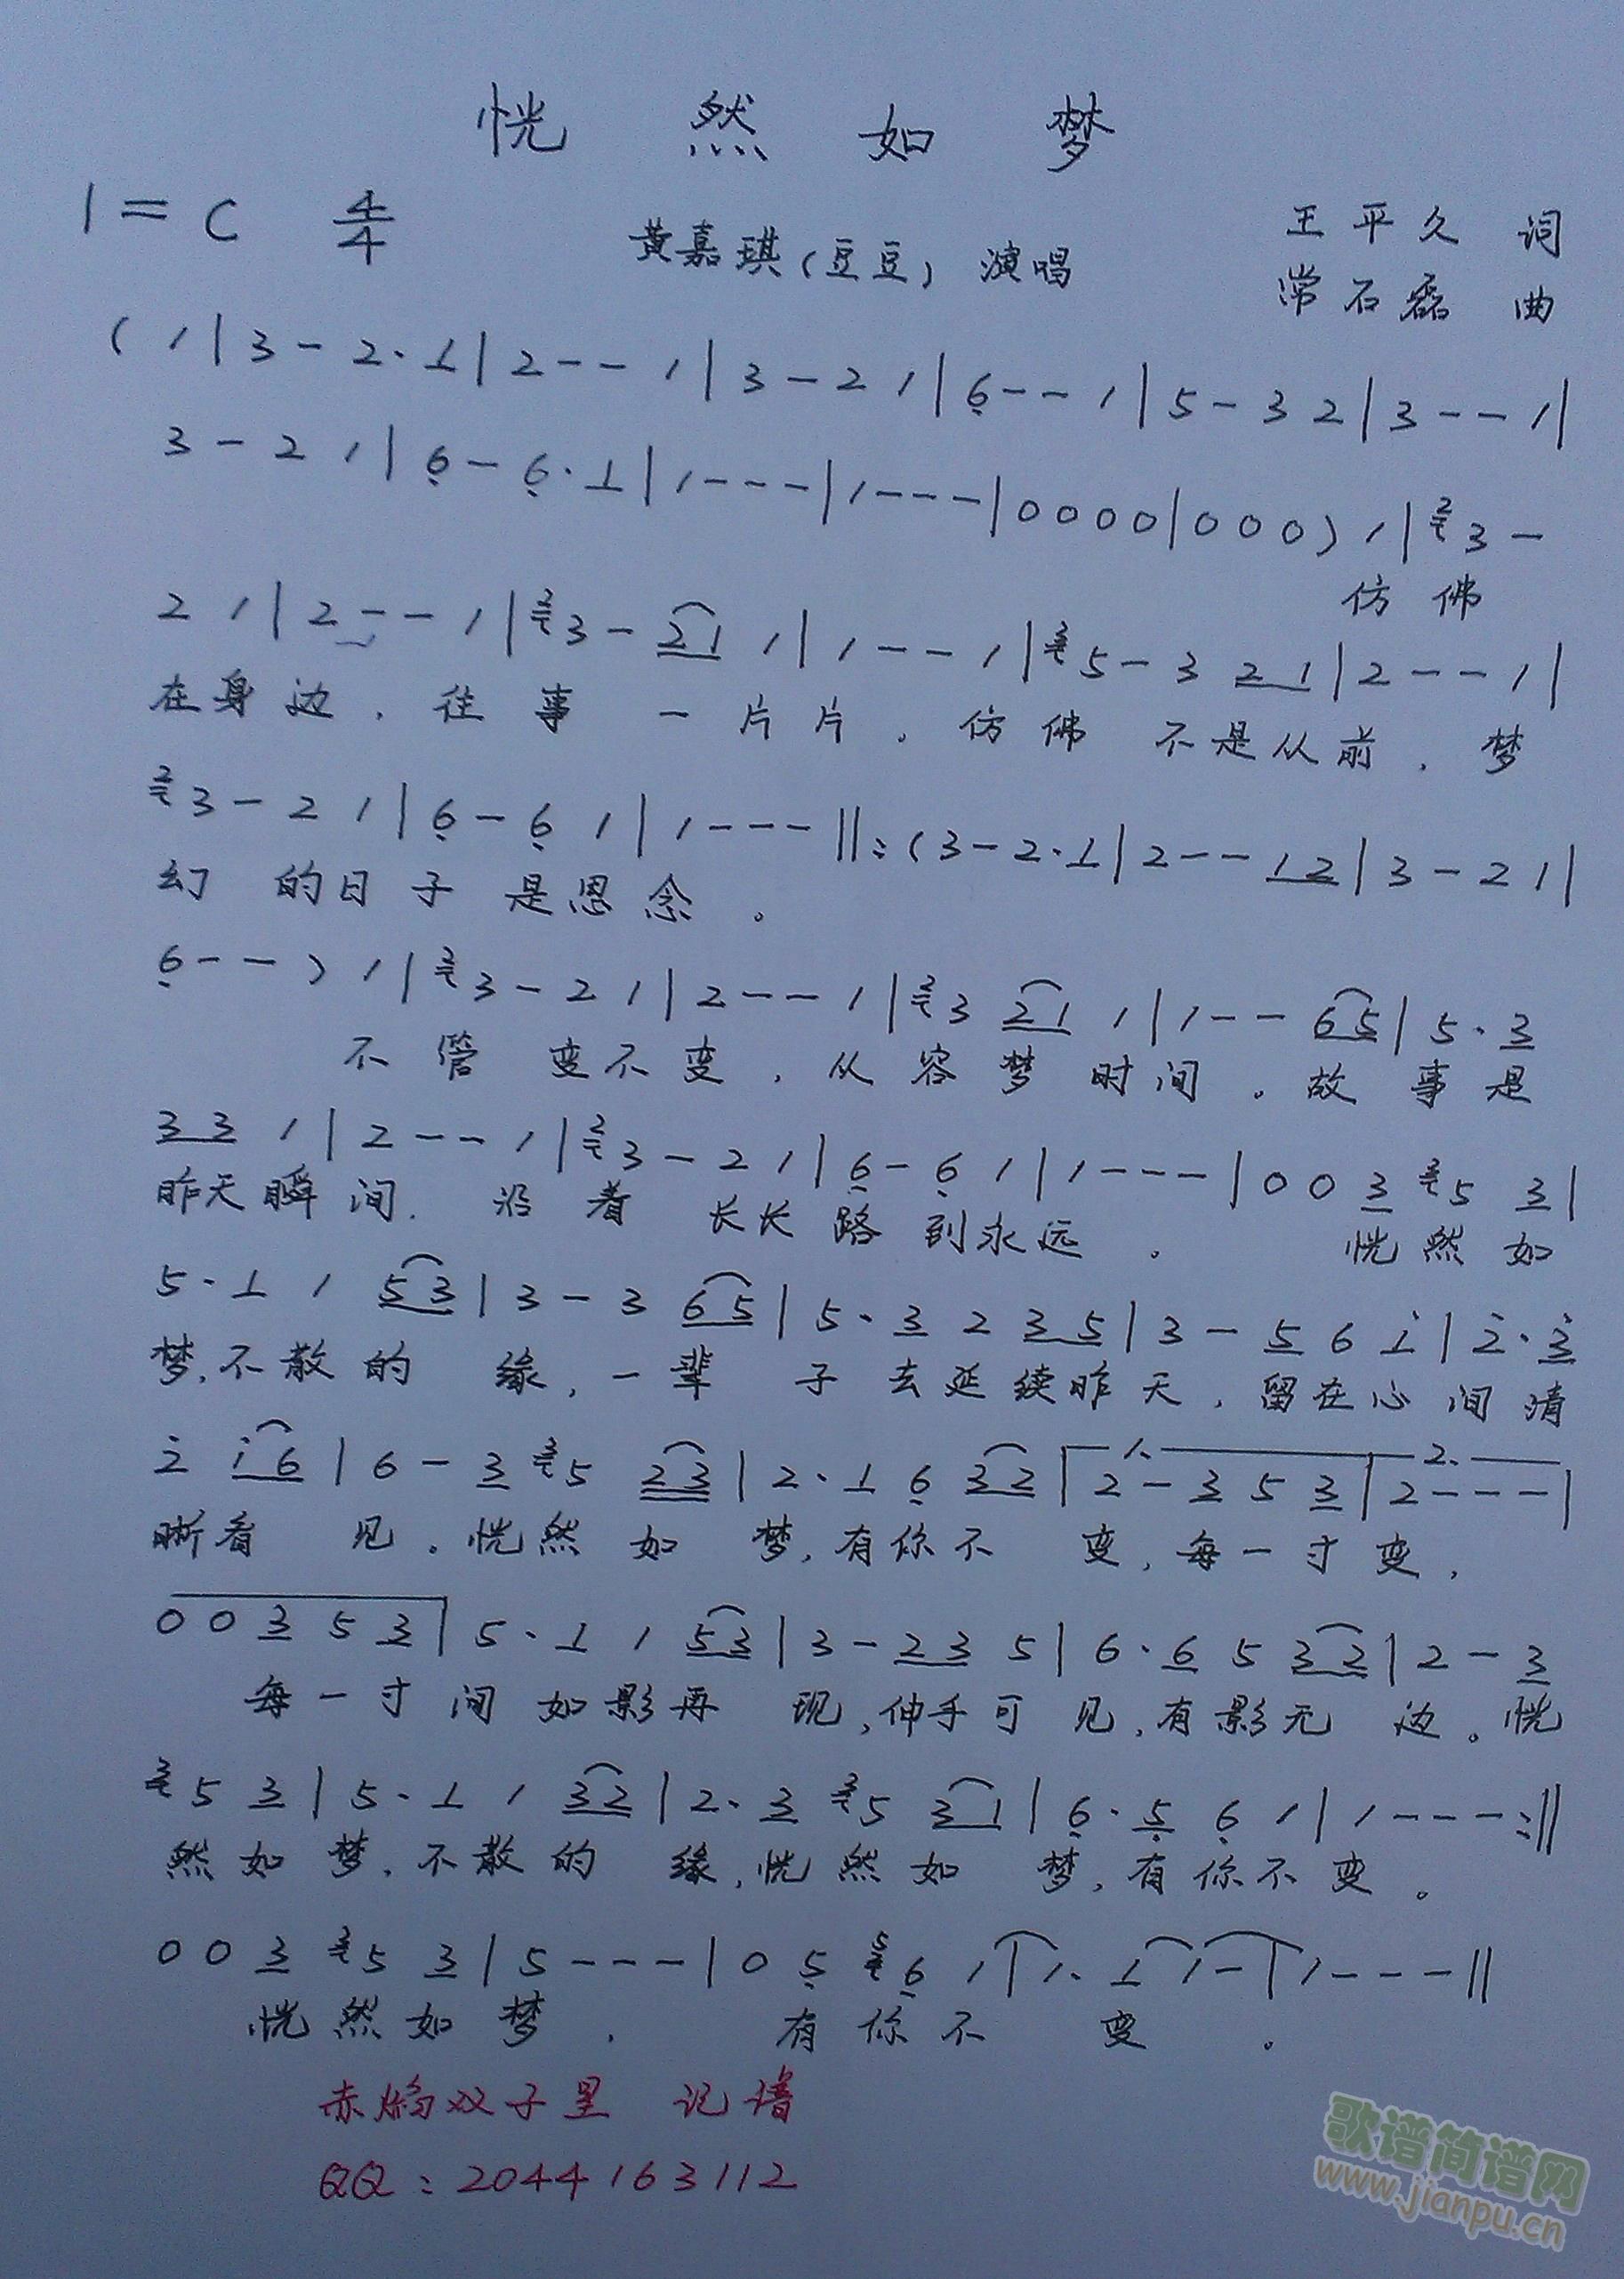 恍然如梦
1=C 4/4 黄嘉琪(豆豆) 演唱 王平久 词
常石磊 曲
( 1 | 3 - 2· 1 | 2 - - 1 | 3 - 2 1 | 6 - - 1 | 5 - 3 2 | 3 - - 1 |
3 - 2 1 | 6 - 6· 1 | 1 - - - | 1 - - - | 0 0 0 0 | 0 0 0 ) 1 | 2 3 -
仿 佛
2 1 | 2 - - 1 | 2 3 - 2 1 1 | 1 - - 1 | 3 5 - 3 2 1 | 2 - - 1 |
在身边，往事一片片。仿佛不是从前，梦
2 3 - 2 1 | 6 - 6 1 | 1 - - - ‖: ( 3 - 2· 1 | 2 - - 1 2 | 3 - 2 1 |
幻的日子是思念。
6 - - ) 1 | 2 3 - 2 1 | 2 - - 1 | 2 3 2 1 1 | 1 - - 6 5 | 5· 3
不管变不变，从容梦时间。故事是
3 3 1 | 2 - - 1 | 2 3 - 2 1 | 6 - 6 1 | 1 - - - | 0 0 3 3 5 3 |
昨天瞬间．沿着长长路到永远。恍然如
5· 1 1 5 3 | 3 - 3 6 5 | 5· 3 2 3 5 | 3 - 5 6 i | 2· 3
梦，不散的缘，一辈子去延续昨天，留在心间清
2 i 6 | 6 - 3 3 5 2 3 | 2· 1 6 3 2 | 1. 2 - 3 5 3 | 2. 2 - - - |
晰看见。恍然如梦，有你不变，每一寸变，
0 0 3 5 3 | 5· 1 1 5 3 | 3 - 2 3 5 | 6· 6 5 3 2 | 2 - 3
每一寸间如影再现，伸手可见，有影无边。恍
3 5 3 | 5· 1 1 3 2 | 2· 3 3 5 3 1 | 6· 5 6 1 | 1 - - - :‖
然如梦，不散的缘，恍然如梦，有你不变。
0 0 3 3 5 3 | 5 - - - | 0 5 5 6 1 | 1· 1 1 - | 1 - - - ‖
恍然如梦，有你不变。
赤焰双子星 记谱
QQ：2044163112
歌谱简谱网
www.jianpu.cn